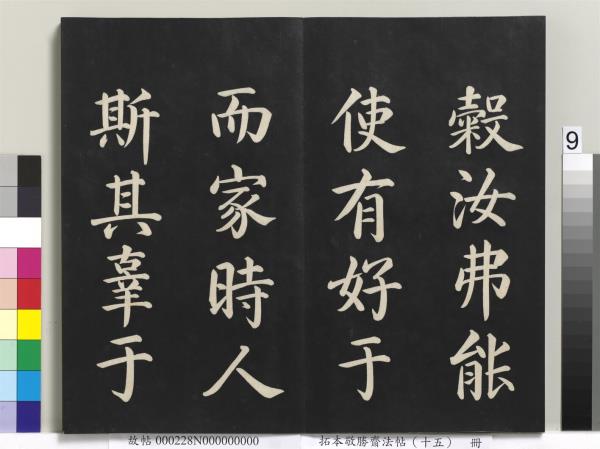 穀汝弗能
使有好于
而家時人
斯其辜于
9
故帖 000228N000000000 拓本敬勝齋法帖（十五） 冊